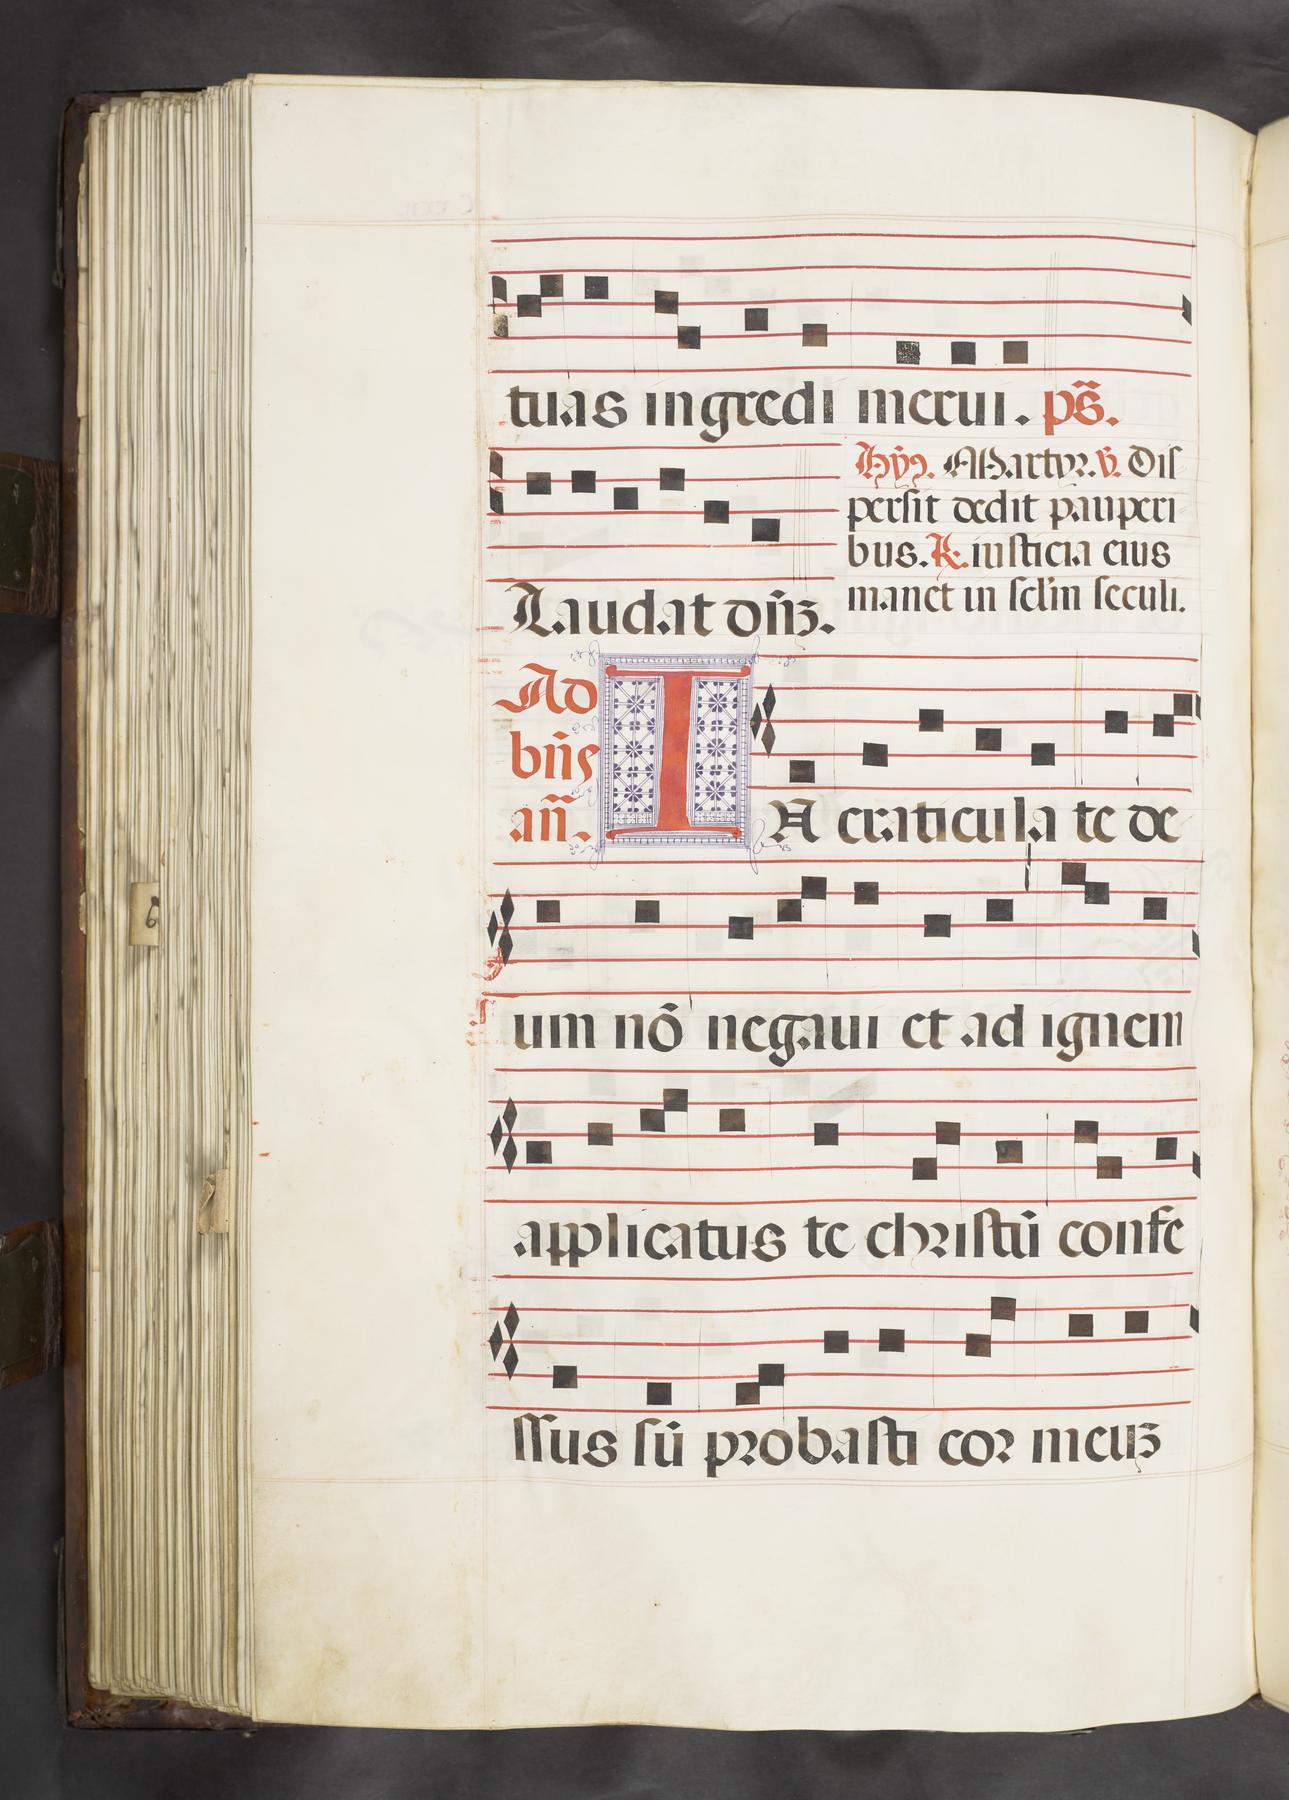 tuas ingredi merui. ps̄.
Laudat dn̄ȝ.
Hỹ. Martyr. v̄. Dis
persit dedit pauperi
bus. R. iusticia eius
manet in scl̄m seculi.
Ad
bn̄s
an̄.
IN craticula te de
um nō negaui et ad ignem
applicatus te christū confe
ssus sū probasti cor meuȝ
6